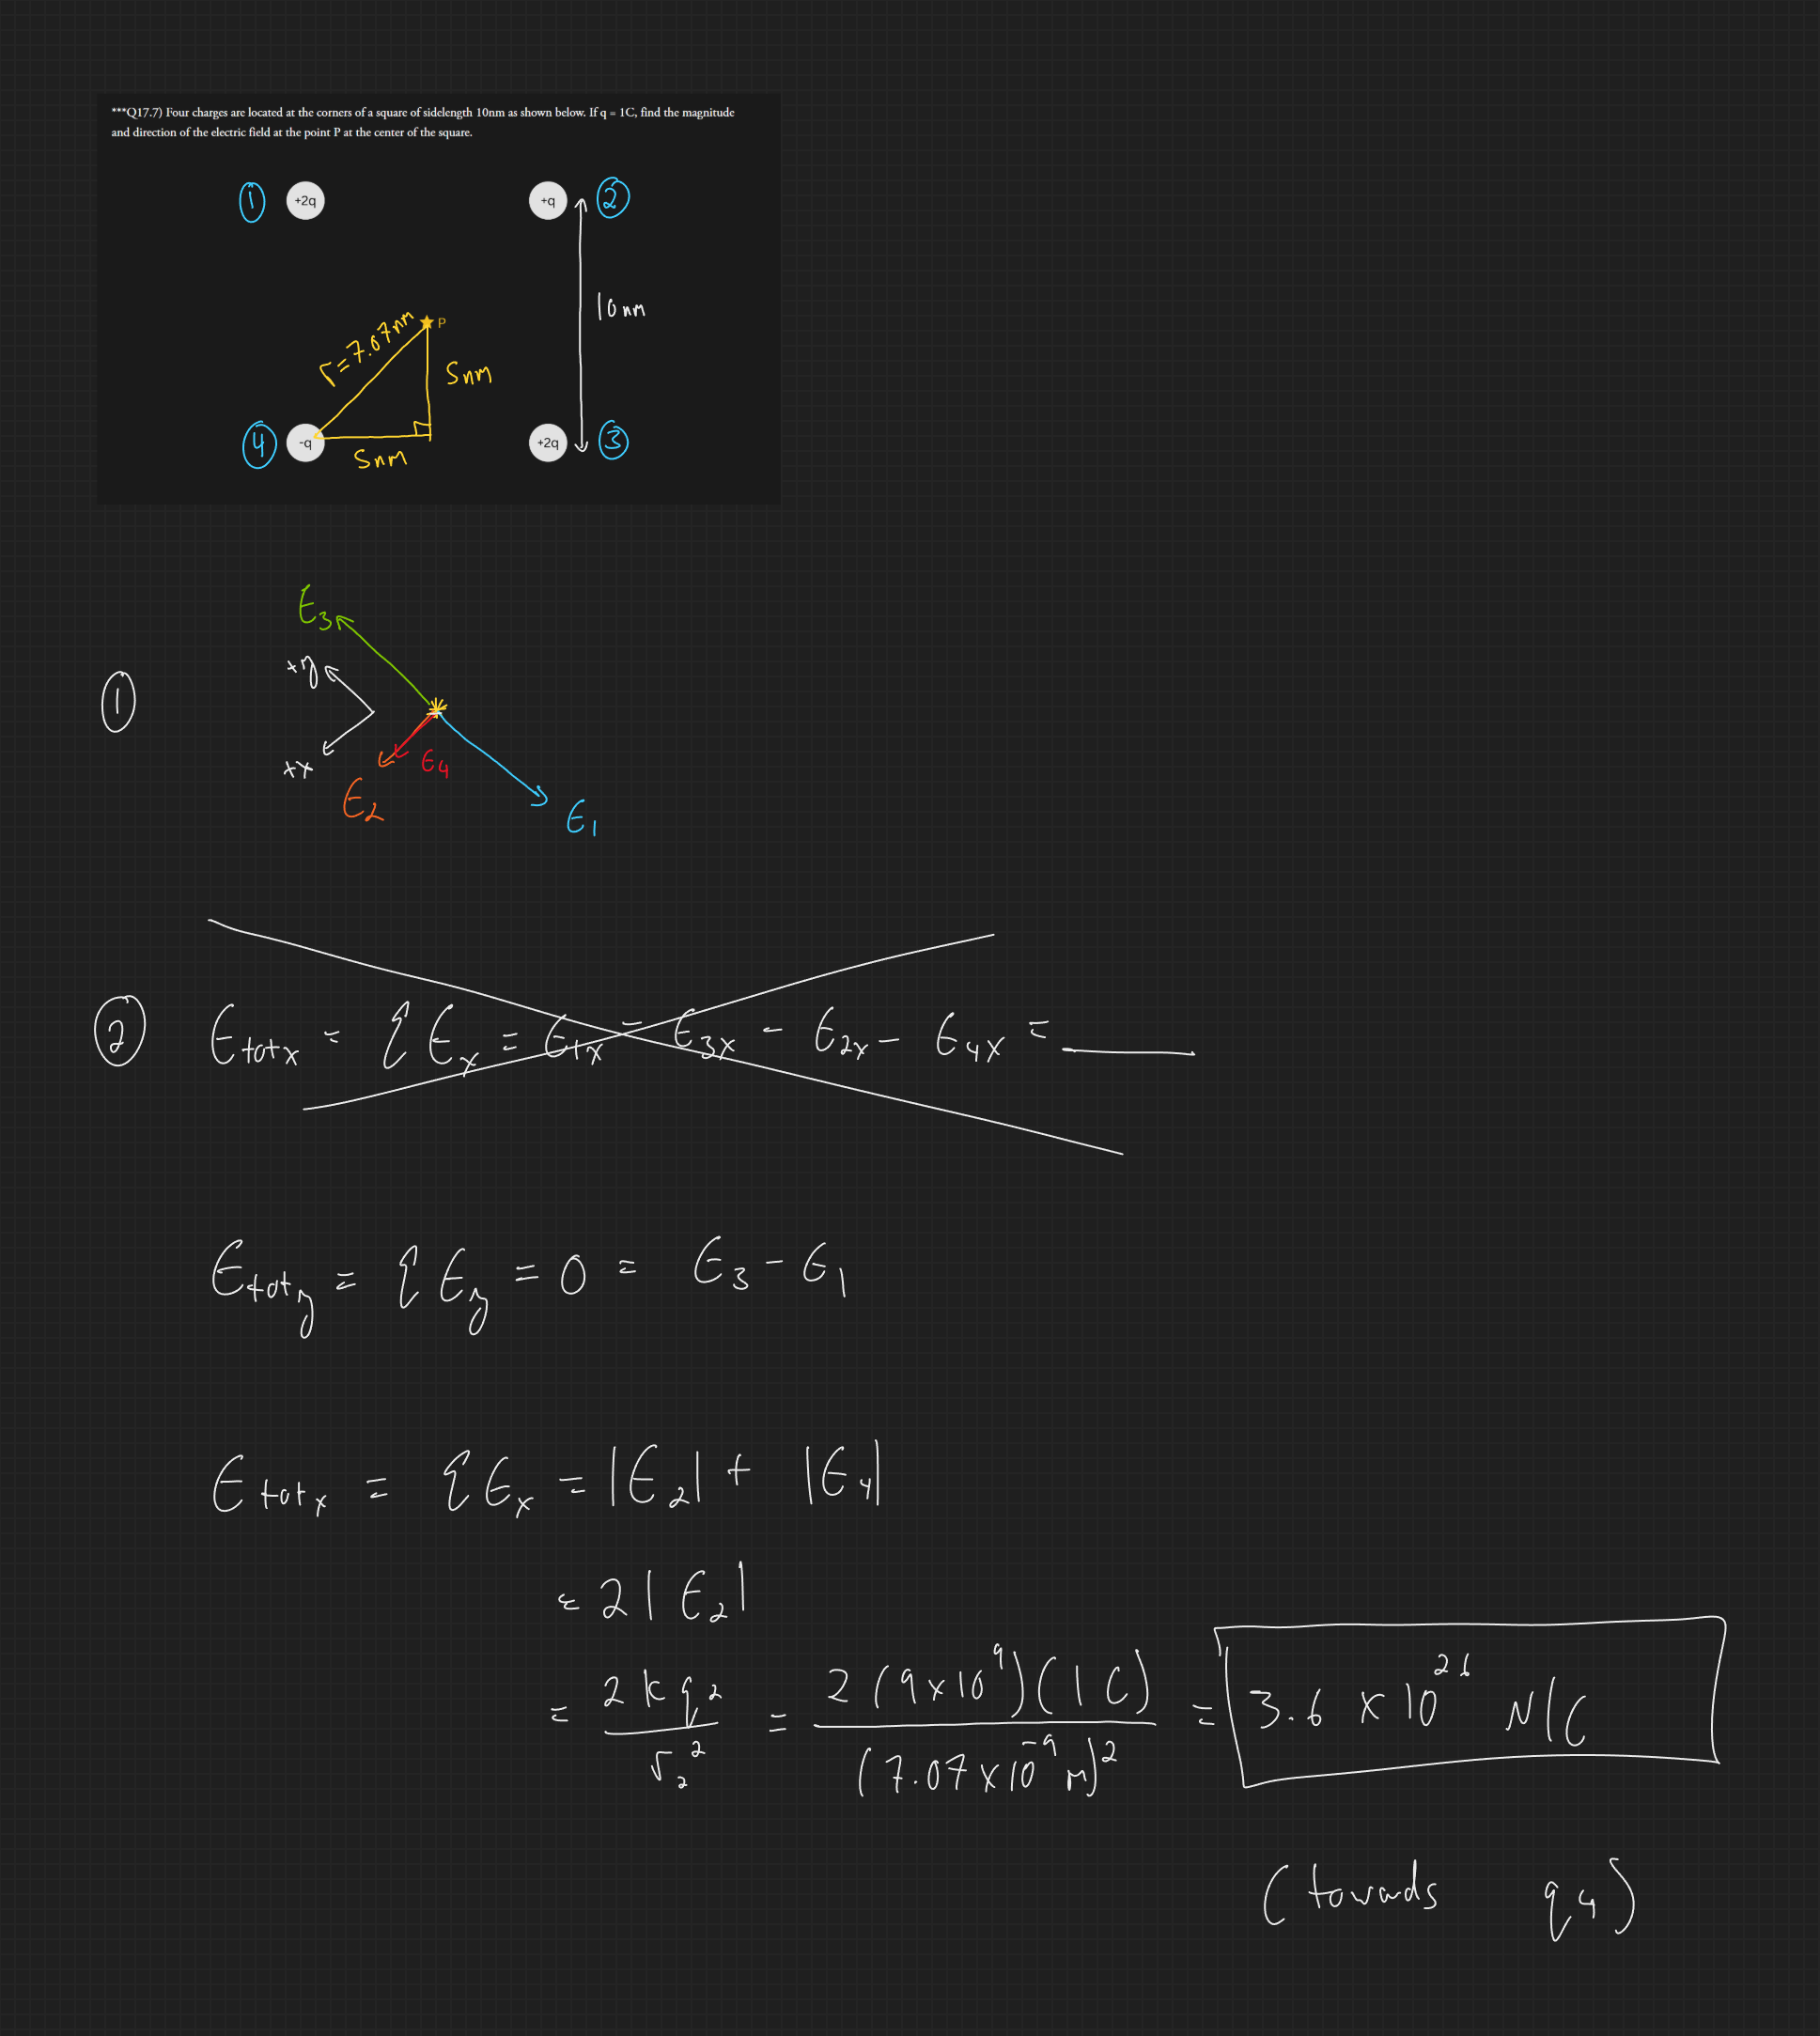 ***Q17.7) Four charges are located at the corners of a square of sidelength 10nm as shown below. If q = 1C, find the magnitude
and direction of the electric field at the point P at the center of the square.
① +2q +q ②
10nm
r=7.07nm P
5nm
④ -q +2q ③
5nm
E₃
+y
①
+x E₄
E₂
E₁
② E tot x = Σ Eₓ = E₁ₓ - E₃ₓ - E₂ₓ - E₄ₓ = ____
E tot y = Σ E y = 0 = E₃ - E₁
E tot x = Σ Eₓ = |E₂| + |E₄|
= 2|E₂|
= 2kq₂ / r₂² = 2(9x10⁹)(1C) / (7.07x10⁻⁹m)² = 3.6 x 10²⁶ N/C
(towards q₄)